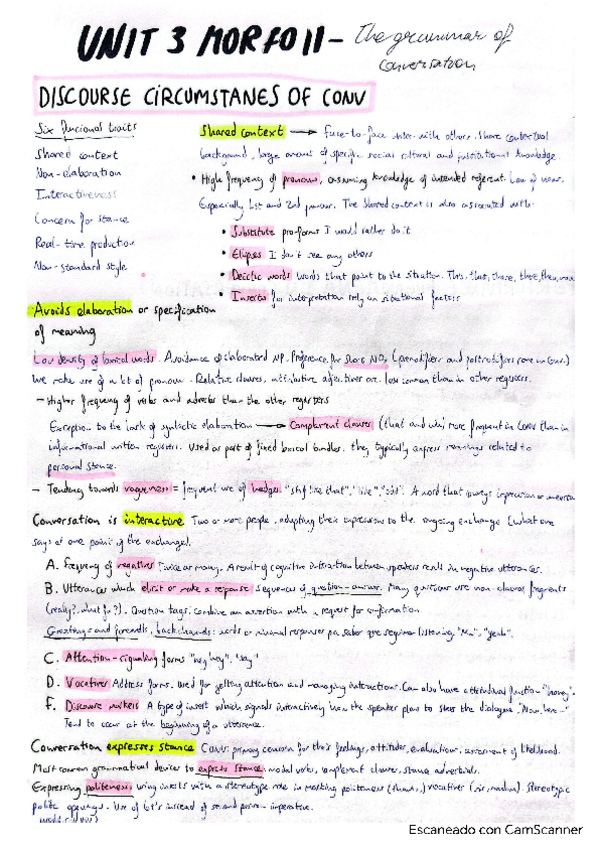 UNIT 3 MORFO II - The grammar of
conversation
DISCOURSE CIRCUMSTANES OF CONV
Six funcional traits
Shared context
Non-elaboration
Interactiveness
Concern for stance
Real-time production
Non-standard style
Shared context → face-to-face inter. with others. Share contextual
background, large amount of specific social cultural and institutional knowledge.
• High frequency of pronouns, assuming knowledge of intended referent. Low of nouns.
Especially 1st and 2nd pronoun. The shared context is also associated with:
• Substitute pro-forms I would rather do it
• Elipses I don't see any others
• Deictic words words that point to the situation. This, that, those, there, then, now
• Inserts for interpretation rely on situational factors
Avoids elaboration or specification
of meaning
Low density of lexical words. Avoidance of elaborated NP. Preference for short NP, (premodifiers and postmodifiers rare in conv.)
We make use of a lot of pronoun. Relative clauses, attributive adjectives are less common than in other registers.
- Higher frequency of verbs and adverbs than the other registers
Exception to the lack of syntactic elaboration → Complement clauses (that and wh) more frequent in conv than in
informational written registers. Used as part of fixed lexical bundles. they typically express meanings related to
personal stance.
- Tendency towards vagueness = frequent use of hedges "stuff like that", "like",
Conversation is interactive Two or more people, adapting their expressions to the ongoing exchange (what one
says at one point of the exchange).
A. Frequency of negatives Twice as many. A result of cognitive interaction between speakers result in negative utterances.
B. Utterances which elicit or make a response Sequences of question-answer. Many questions use non-clausal fragments
(really?, what for?). Question tags: combine an assertion with a request for confirmation
Greetings and farewells, backchannels: words or minimal responses pa saber que seguimos listening, "Mm", "yeah".
C. Attention-signaling forms "hey hey". "say"
D. Vocatives Address forms. Used for getting attention and managing interactions. Can also have attitudinal function "honey".
F. Discourse markers A type of insert which signals interactively how the speaker plans to steer the dialogue.
Tend to occur at the beginning of a utterance.
Conversation expresses stance Conv: primary concern for their feelings, attitudes, evaluations, assessment of likelihood.
Most common grammatical devices to express stance: modal verbs, complement clauses, stance adverbials.
Expressing politeness: using inserts with a stereotype role in marking politeness (thanks,) vocatives (sir, madam). Stereotypic
polite openings. Use of let's instead of second person imperative.
Escaneado con CamScanner